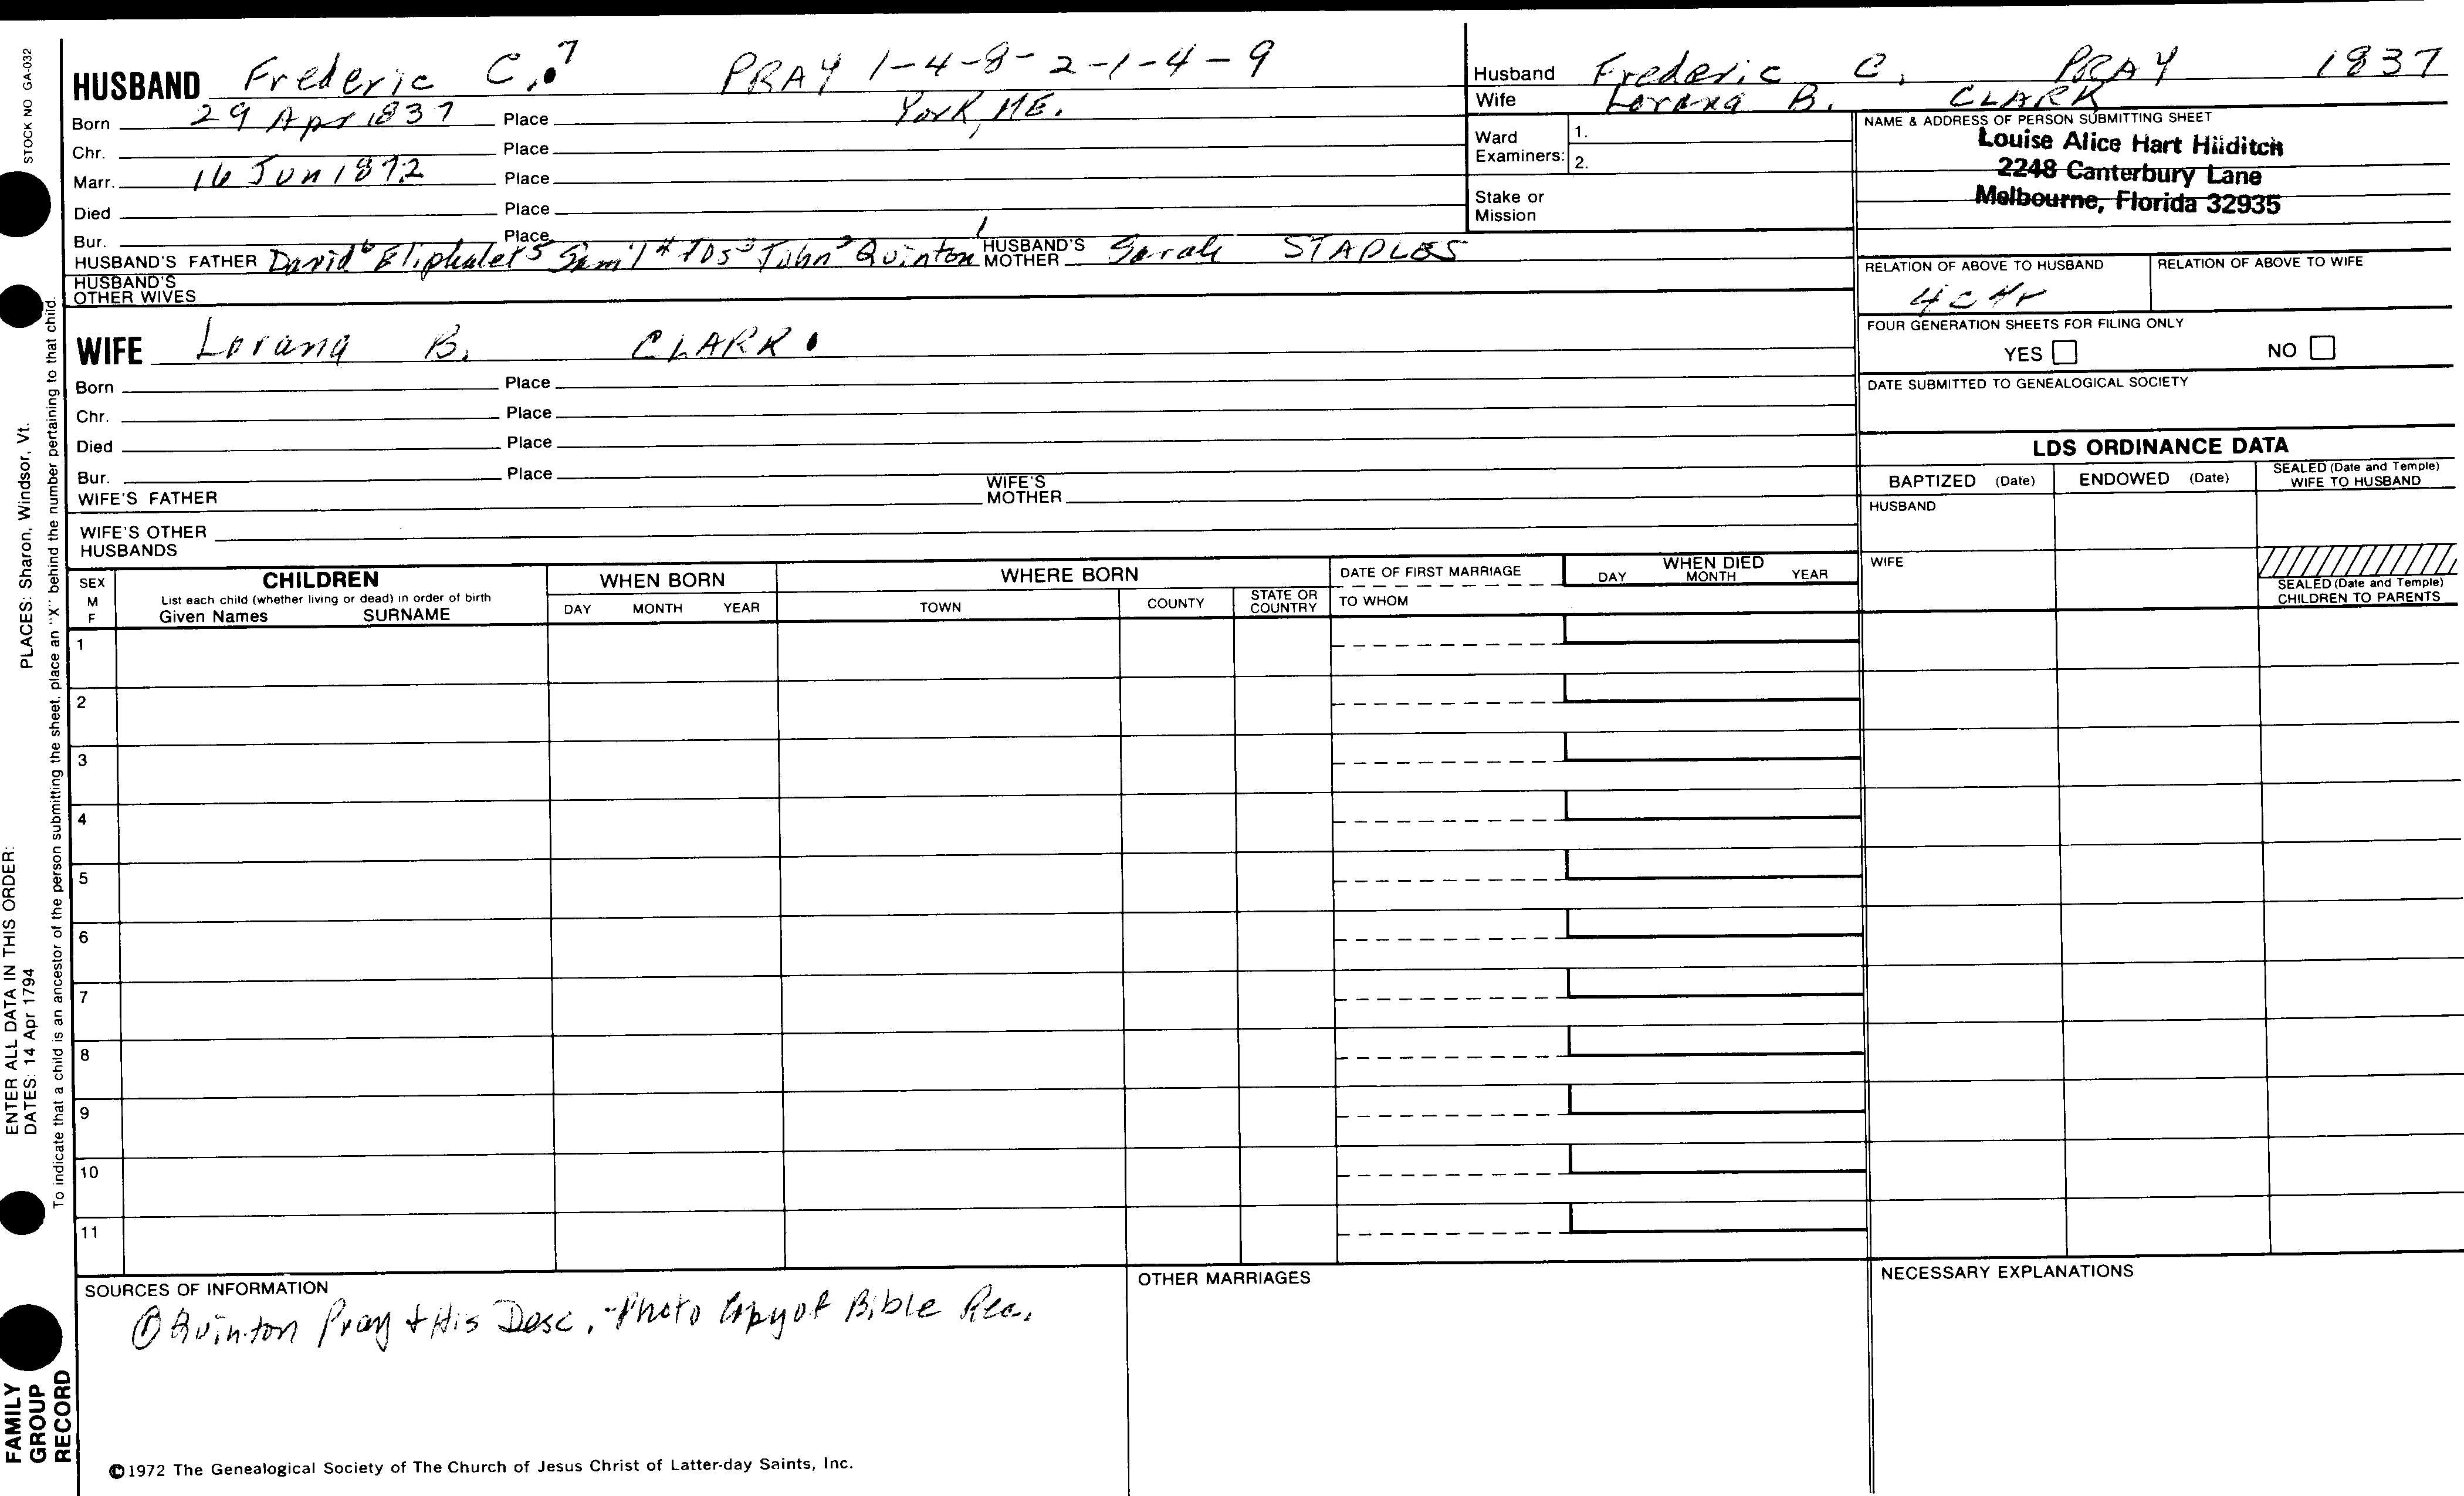 STOCK NO GA-032
HUSBAND Frederic C.7 PRAY 1-4-8-2-1-4-9
Born 29 Apr 1837 Place York, ME.
Chr. Place
Marr. 16 Jun 1872 Place
Died Place
Bur. Place
HUSBAND'S FATHER David6 Eliphalet5 Sam'l4 Jos3 John2 Quinton1 HUSBAND'S MOTHER Sarah STAPLES
HUSBAND'S OTHER WIVES
WIFE Lorana B. CLARK
Born Place
Chr. Place
Died Place
Bur. Place
WIFE'S FATHER WIFE'S MOTHER
WIFE'S OTHER HUSBANDS
Husband Frederic C. PRAY 1837
Wife Lorana B. CLARK
Ward Examiners: 1.
2.
Stake or Mission
NAME & ADDRESS OF PERSON SUBMITTING SHEET
Louise Alice Hart Hilditch
2248 Canterbury Lane
Melbourne, Florida 32935
RELATION OF ABOVE TO HUSBAND RELATION OF ABOVE TO WIFE
FOUR GENERATION SHEETS FOR FILING ONLY
YES NO
DATE SUBMITTED TO GENEALOGICAL SOCIETY
LDS ORDINANCE DATA
BAPTIZED (Date) ENDOWED (Date) SEALED (Date and Temple) WIFE TO HUSBAND
HUSBAND
WIFE
SEALED (Date and Temple) CHILDREN TO PARENTS
SEX M F
CHILDREN
List each child (whether living or dead) in order of birth
Given Names SURNAME
WHEN BORN
DAY MONTH YEAR
WHERE BORN
TOWN COUNTY STATE OR COUNTRY
DATE OF FIRST MARRIAGE
TO WHOM
WHEN DIED
DAY MONTH YEAR
1
2
3
4
5
6
7
8
9
10
11
SOURCES OF INFORMATION
① Quinton Pray + His Desc. - Photo Copy of Bible Rec.
OTHER MARRIAGES
NECESSARY EXPLANATIONS
©1972 The Genealogical Society of The Church of Jesus Christ of Latter-day Saints, Inc.
ENTER ALL DATA IN THIS ORDER:
DATES: 14 Apr 1794
PLACES: Sharon, Windsor, Vt.
To indicate that a child is an ancestor of the person submitting the sheet, place an "X" behind the number pertaining to that child.
FAMILY
GROUP
RECORD